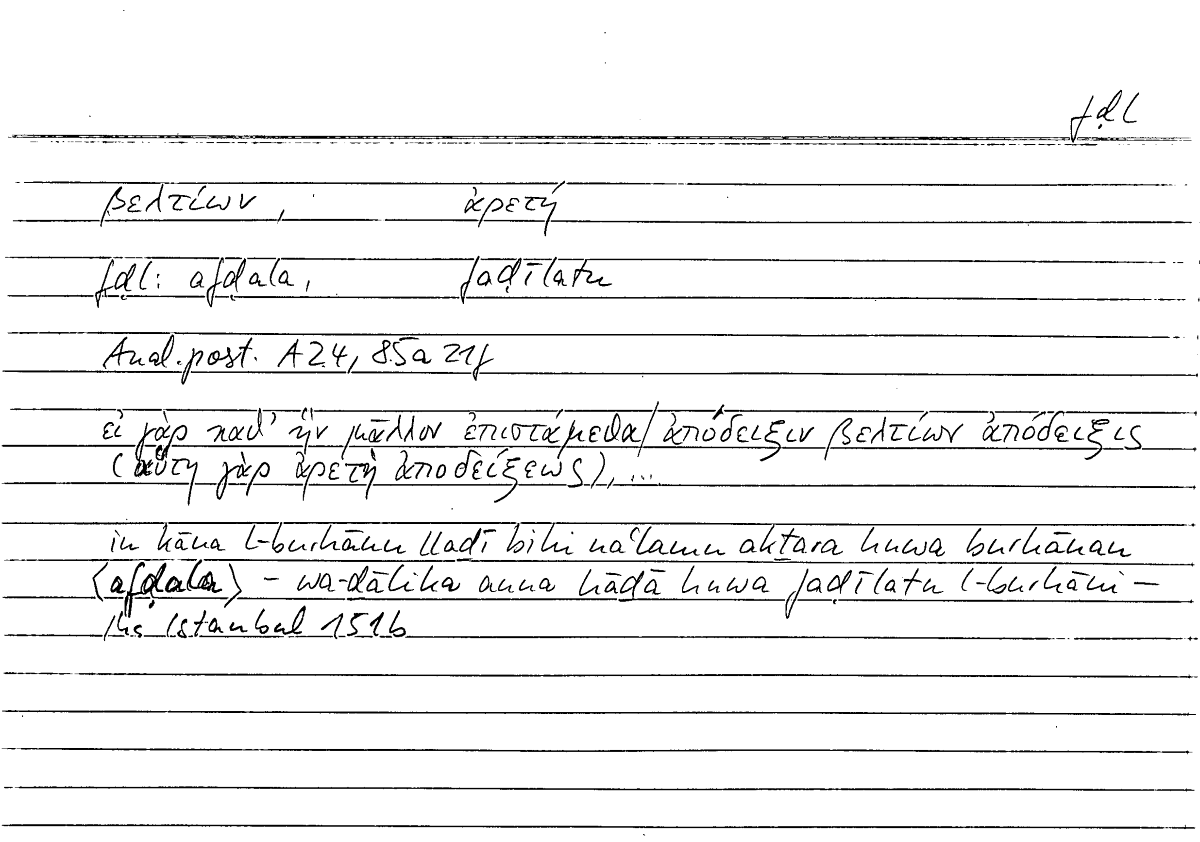 fḍl
βελτίων, ἀρετή
fḍl: afḍala, faḍīlatu
Anal. post. A 24, 85a 21f
εἰ γὰρ καθ' ἣν μᾶλλον ἐπιστάμεθα/ἀπόδειξιν βελτίων ἀπόδειξις
(αὕτη γὰρ ἀρετὴ ἀποδείξεως), ...
in kāna l-burhānu llaḏī bihi naʿlamu akṯara huwa burhānan
⟨afḍala⟩ – wa-ḏālika anna hāḏā huwa faḍīlatu l-burhāni –
Hs Istanbul 151b